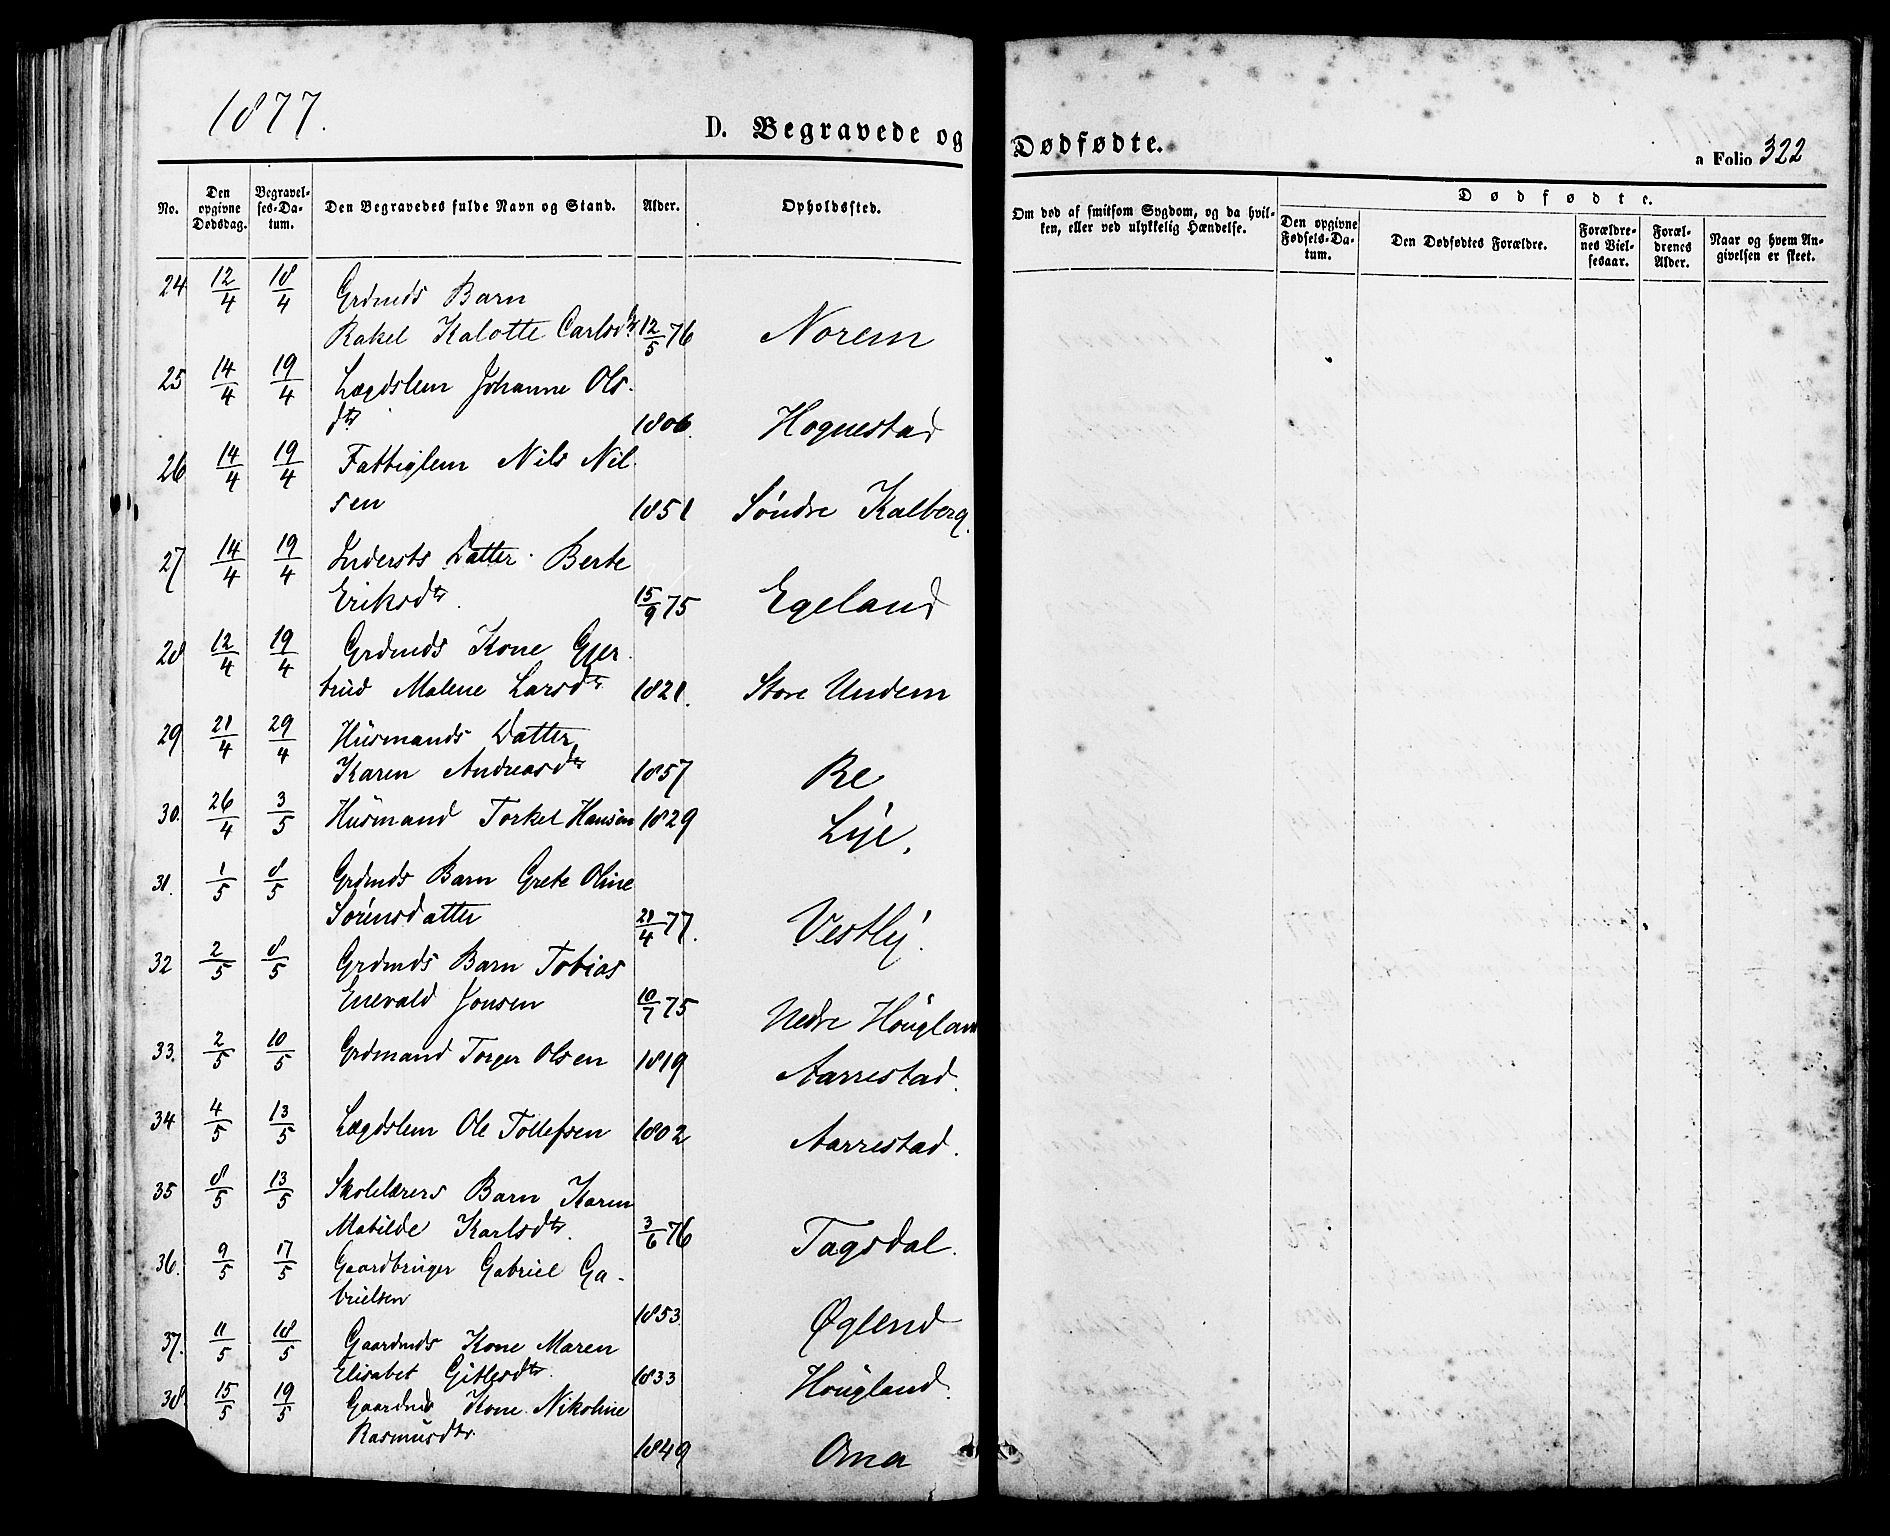 1877.
D. Begravede og Dødfødte.
a Folio 322
No.
Den opgivne Dødsdag.
Begravelses-Datum.
Den Begravedes fulde Navn og Stand.
Alder.
Opholdssted.
Om død af smitsom Sygdom, og da hvilken, eller ved ulykkelig Hændelse.
Dødfødte.
Den opgivne Fødsels-Datum.
Den Dødfødtes Forældre.
Forældrenes Vielsesaar.
Forældrenes Alder.
Naar og hvem Angivelsen er skeet.
24 12/4 18/4 Grdmds Barn
Rakel Kalotte Carlsdtr 12/5 76 Norem
25 14/4 19/4 Lægdslem Johanne Ols-
dtr 1806. Hognestad
26 14/4 19/4 Fattiglem Nils Nil-
sen 1851 Søndre Kalberg.
27 14/4 19/4 Indersts Datter Berte
Eriksdtr. 15/9 75 Egeland
28 12/4 19/4 Grdmds Kone Gjer-
trud Malene Larsdtr 1821. Store Undem
29 21/4 29/4 Husmands Datter
Karen Andreasdtr 1857 Re
30. 26/4 3/5 Husmand Torkel Hansen 1829 Lye.
31. 1/5 8/5 Grdmds Barn Grete Oline
Sørensdatter 21/4 77. Vestly.
32 2/5 8/5 Grdmds Barn Tobias
Enevald Jonsen 10/7 75 Nedre Høugland
33. 2/5 10/5 Grdmand Torger Olsen 1819 Aarrestad.
34 4/5 13/5 Lægdslem Ole Tollefsen 1802 Aarrestad.
35 8/5 13/5 Skolelærers Barn Karen
Matilde Karlsdtr. 3/6 76 Tagsdal.
36. 9/5 17/5 Gaardbruger Gabriel Ga-
brielsen 1853. Øglend
37. 11/5 18/5 Gaardmds Kone Maren
Elisabet Gitlesdtr. 1833 Høugland.
38. 15/5 19/5 Gaardmds Kone Nikoline
Rasmusdtr. 1849 Oma